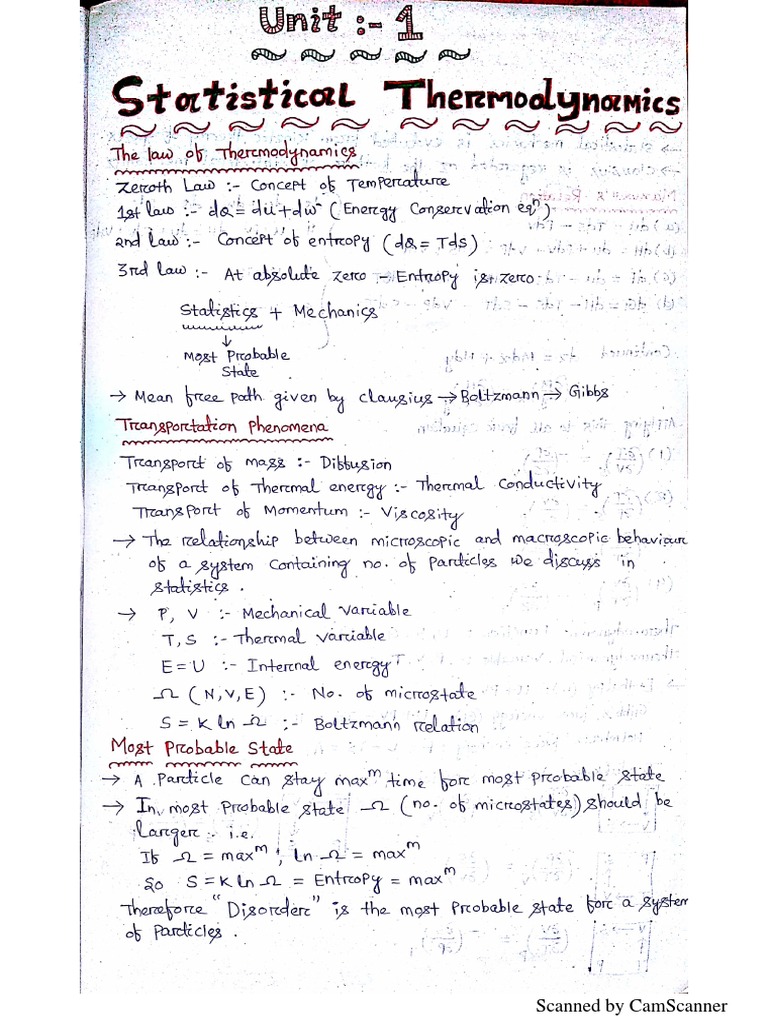 Unit :- 1
Statistical Thermodynamics
The law of Thermodynamics
Zeroth Law :- Concept of Temperature
1st law :- dQ = du + dw (Energy Conservation eqⁿ)
2nd law :- Concept of entropy (dQ = Tds)
3rd law :- At absolute zero - Entropy is zero
Statistics + Mechanics
↓
Most Probable
State
→ Mean free path given by clausius → Boltzmann → Gibbs
Transportation Phenomena
Transport of mass :- Diffusion
Transport of Thermal energy :- Thermal Conductivity
Transport of Momentum :- Viscosity
→ The relationship between microscopic and macroscopic behaviour
of a system containing no. of particles we discuss in
statistics.
→ P, V :- Mechanical variable
T, S :- Thermal variable
E = U :- Internal energy
Ω (N, V, E) :- No. of microstate
S = K ln Ω :- Boltzmann relation
Most Probable State
→ A Particle can stay maxᵐ time for most probable state
→ In most probable state Ω (no. of microstates) should be
larger i.e.
If Ω = maxᵐ, ln Ω = maxᵐ
So S = K ln Ω = Entropy = maxᵐ
Therefore "Disorder" is the most probable state for a system
of particles.
Scanned by CamScanner